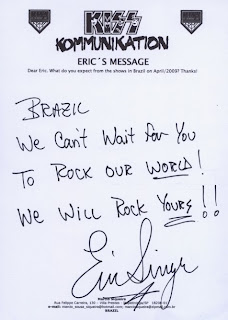 KISS
KOMMUNIKATION
ERIC´S MESSAGE
Dear Eric. What do you expect from the shows in Brazil on April/2009? Thanks!
BRAZIL
We Can't Wait for You
To Rock our WORLD!
We will Rock Yours!!
Eric Singer
BRAZIL